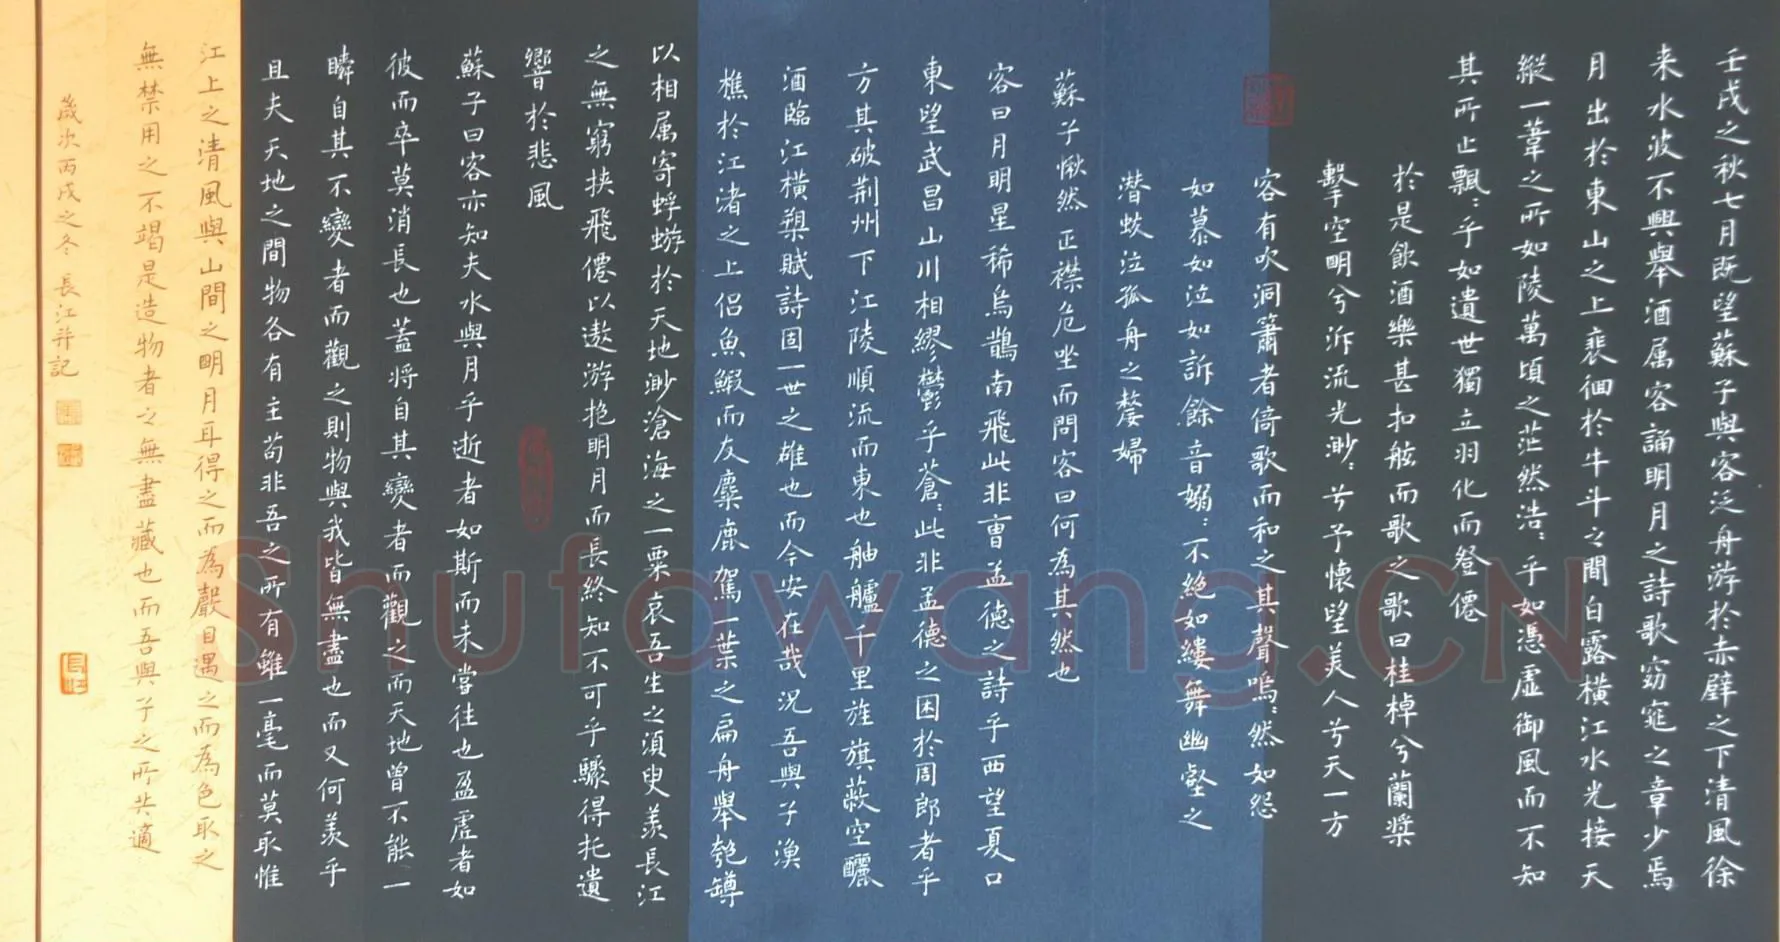 壬戌之秋七月既望蘇子與客泛舟游於赤壁之下清風徐
来水波不興舉酒属客誦明月之詩歌窈窕之章少焉
月出於東山之上裴佪於牛斗之間白露橫江水光接天
縱一葦之所如陵萬頃之茫然浩：乎如憑虛御風而不知
其所止飄：乎如遺世獨立羽化而登僊
於是飲酒樂甚扣舷而歌之歌曰桂棹兮蘭槳
擊空明兮泝流光渺：兮予懷望美人兮天一方
客有吹洞簫者倚歌而和之其聲嗚：然如怨
如慕如泣如訴餘音嫋：不絶如縷舞幽壑之
潜蛟泣孤舟之嫠婦
蘇子愀然正襟危坐而問客曰何為其然也
客曰月明星稀烏鵲南飛此非曹孟德之詩乎西望夏口
東望武昌山川相繆鬱乎蒼：此非孟德之困於周郎者乎
方其破荆州下江陵順流而東也舳艫千里旌旗蔽空釃
酒臨江橫槊賦詩固一世之雄也而今安在哉況吾與子漁
樵於江渚之上侣魚鰕而友麋鹿駕一葉之扁舟舉匏罇
以相属寄蜉蝣於天地渺滄海之一粟哀吾生之須臾羨長江
之無窮挾飛僊以遨游抱明月而長終知不可乎驟得托遺
響於悲風
蘇子曰客亦知夫水與月乎逝者如斯而未嘗往也盈虛者如
彼而卒莫消長也蓋將自其變者而觀之而天地曾不能一
瞬自其不變者而觀之則物與我皆無盡也而又何羨乎
且夫天地之間物各有主苟非吾之所有雖一毫而莫取惟
江上之清風與山間之明月耳得之而為聲目遇之而為色取之
無禁用之不竭是造物者之無盡藏也而吾與子之所共適
歲次丙戌之冬 長江并記
Shufawang.CN